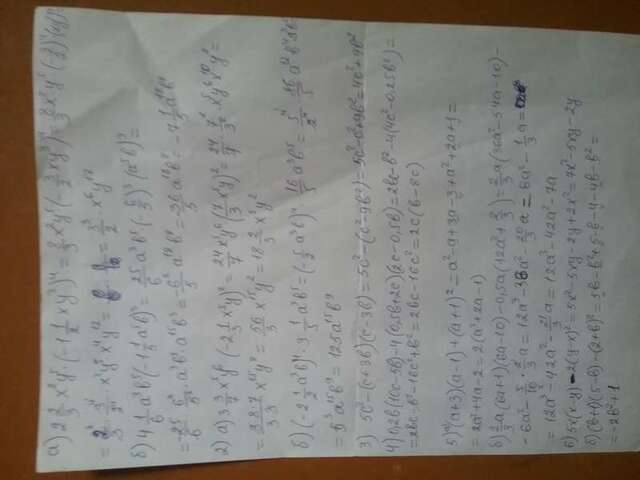 а) 2 2/3 x²y⁵·(-1 1/2 xy³)⁴ = 8/3 x²y⁵(-3/2 xy³)⁴ = 8/3 x²y⁵(-3/2)⁴(xy³)⁴
= 2³/3 · 3⁴/2⁴ · x²y⁵ x⁴y¹² = = 3³/2 · x⁶y¹⁷
б) 4 1/6 a³b⁵(-1 1/5 a⁵b)³ = 25/6 a³b⁵(-6/5)³(a⁵b)³ =
= -25/6 · 6³/5³ · a³b⁵ · a¹⁵b³ = -6²/5 a¹⁸b⁸ = -36/5 a¹⁸b⁸ = -7 1/5 a¹⁸b⁸
2) а) 3 3/7 x⁵y⁶ · (-2 1/3 x⁵y)² = 24/7 x⁵y⁶(7/3 x⁵y)² = 24/7 · 7²/3² · x⁵y⁶x¹⁰y² =
= 3·8·7/3·3 x¹⁵y⁸ = 56/3 x¹⁵y² = 18 2/3 x⁵y²
б) (-2 1/2 a³b)⁴ · 3 1/5 a³b⁵ = (-5/2 a³b)⁴ 16/5 a³b⁵ = 5⁴/2⁴ · 16/5 a¹²b⁴a³b⁵
= 5³a¹⁵b⁹ = 125a¹⁵b⁹
3) 5c² - (c+3b)(c-3b) = 5c² - (c²-9b²) = 5c²-c²+9b² = 4c²+9b²
4) 0,2b(10c-5b) - 4(0,5b+2c)(2c-0,5b) = 2bc-b²-4(4c²-0,25b²) =
= 2bc-b²-16c²+b² = 2bc-16c² = 2c(b-8c)
5) а) (a+3)(a-1)+(a+1)² = a²-a+3a-3+a²+2a+1 =
= 2a²+4a-2 = 2(a²+2a-1)
б) 2/3 a(6a+1)(6a-10) - 0,5a(12a²+2/3) = 2/3 a(36a²-54a-10) -
= 12a³-42a²-21/3 a = 12a³-42a²-7a
6) 5x(x-y)-2(y-x)² = 5x²-5xy-2y+2x² = 7x²-5xy-2y
б) (b+1)(5-b)-(2+b)² = 5b-b²+5-b-4-4b-b² =
= -2b²+1